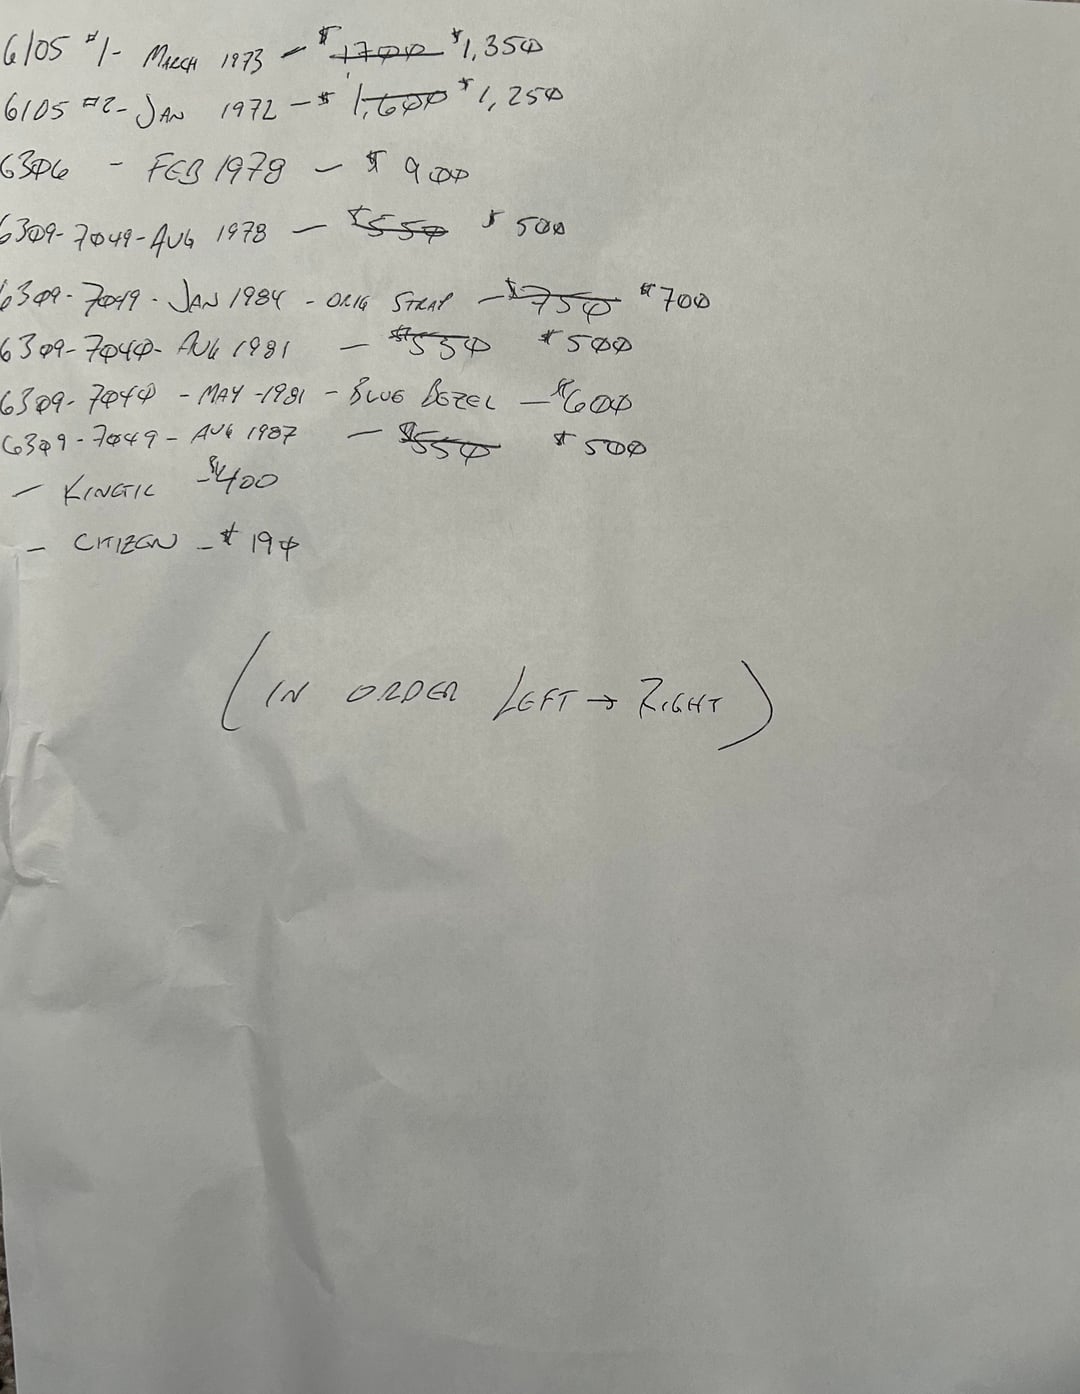 6105 #1- MARCH 1973 - $1700 $1,350
6105 #2- JAN 1972 - $1,600 $1,250
6306 - FEB 1978 - $900
6309-7049-AUG 1978 - $550 $500
6309-7049-JAN 1984 - ORIG STRAP - $750 $700
6309-7040- AUG 1981 - $550 $500
6309-7040 - MAY -1981 - BLUE BEZEL - $600
6309-7049- AUG 1987 - $550 $500
- KINETIC - $400
- CITIZEN - $190
(IN ORDER LEFT → RIGHT)